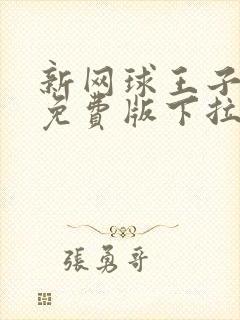 新网球王子
免費版下拉
張勇哥